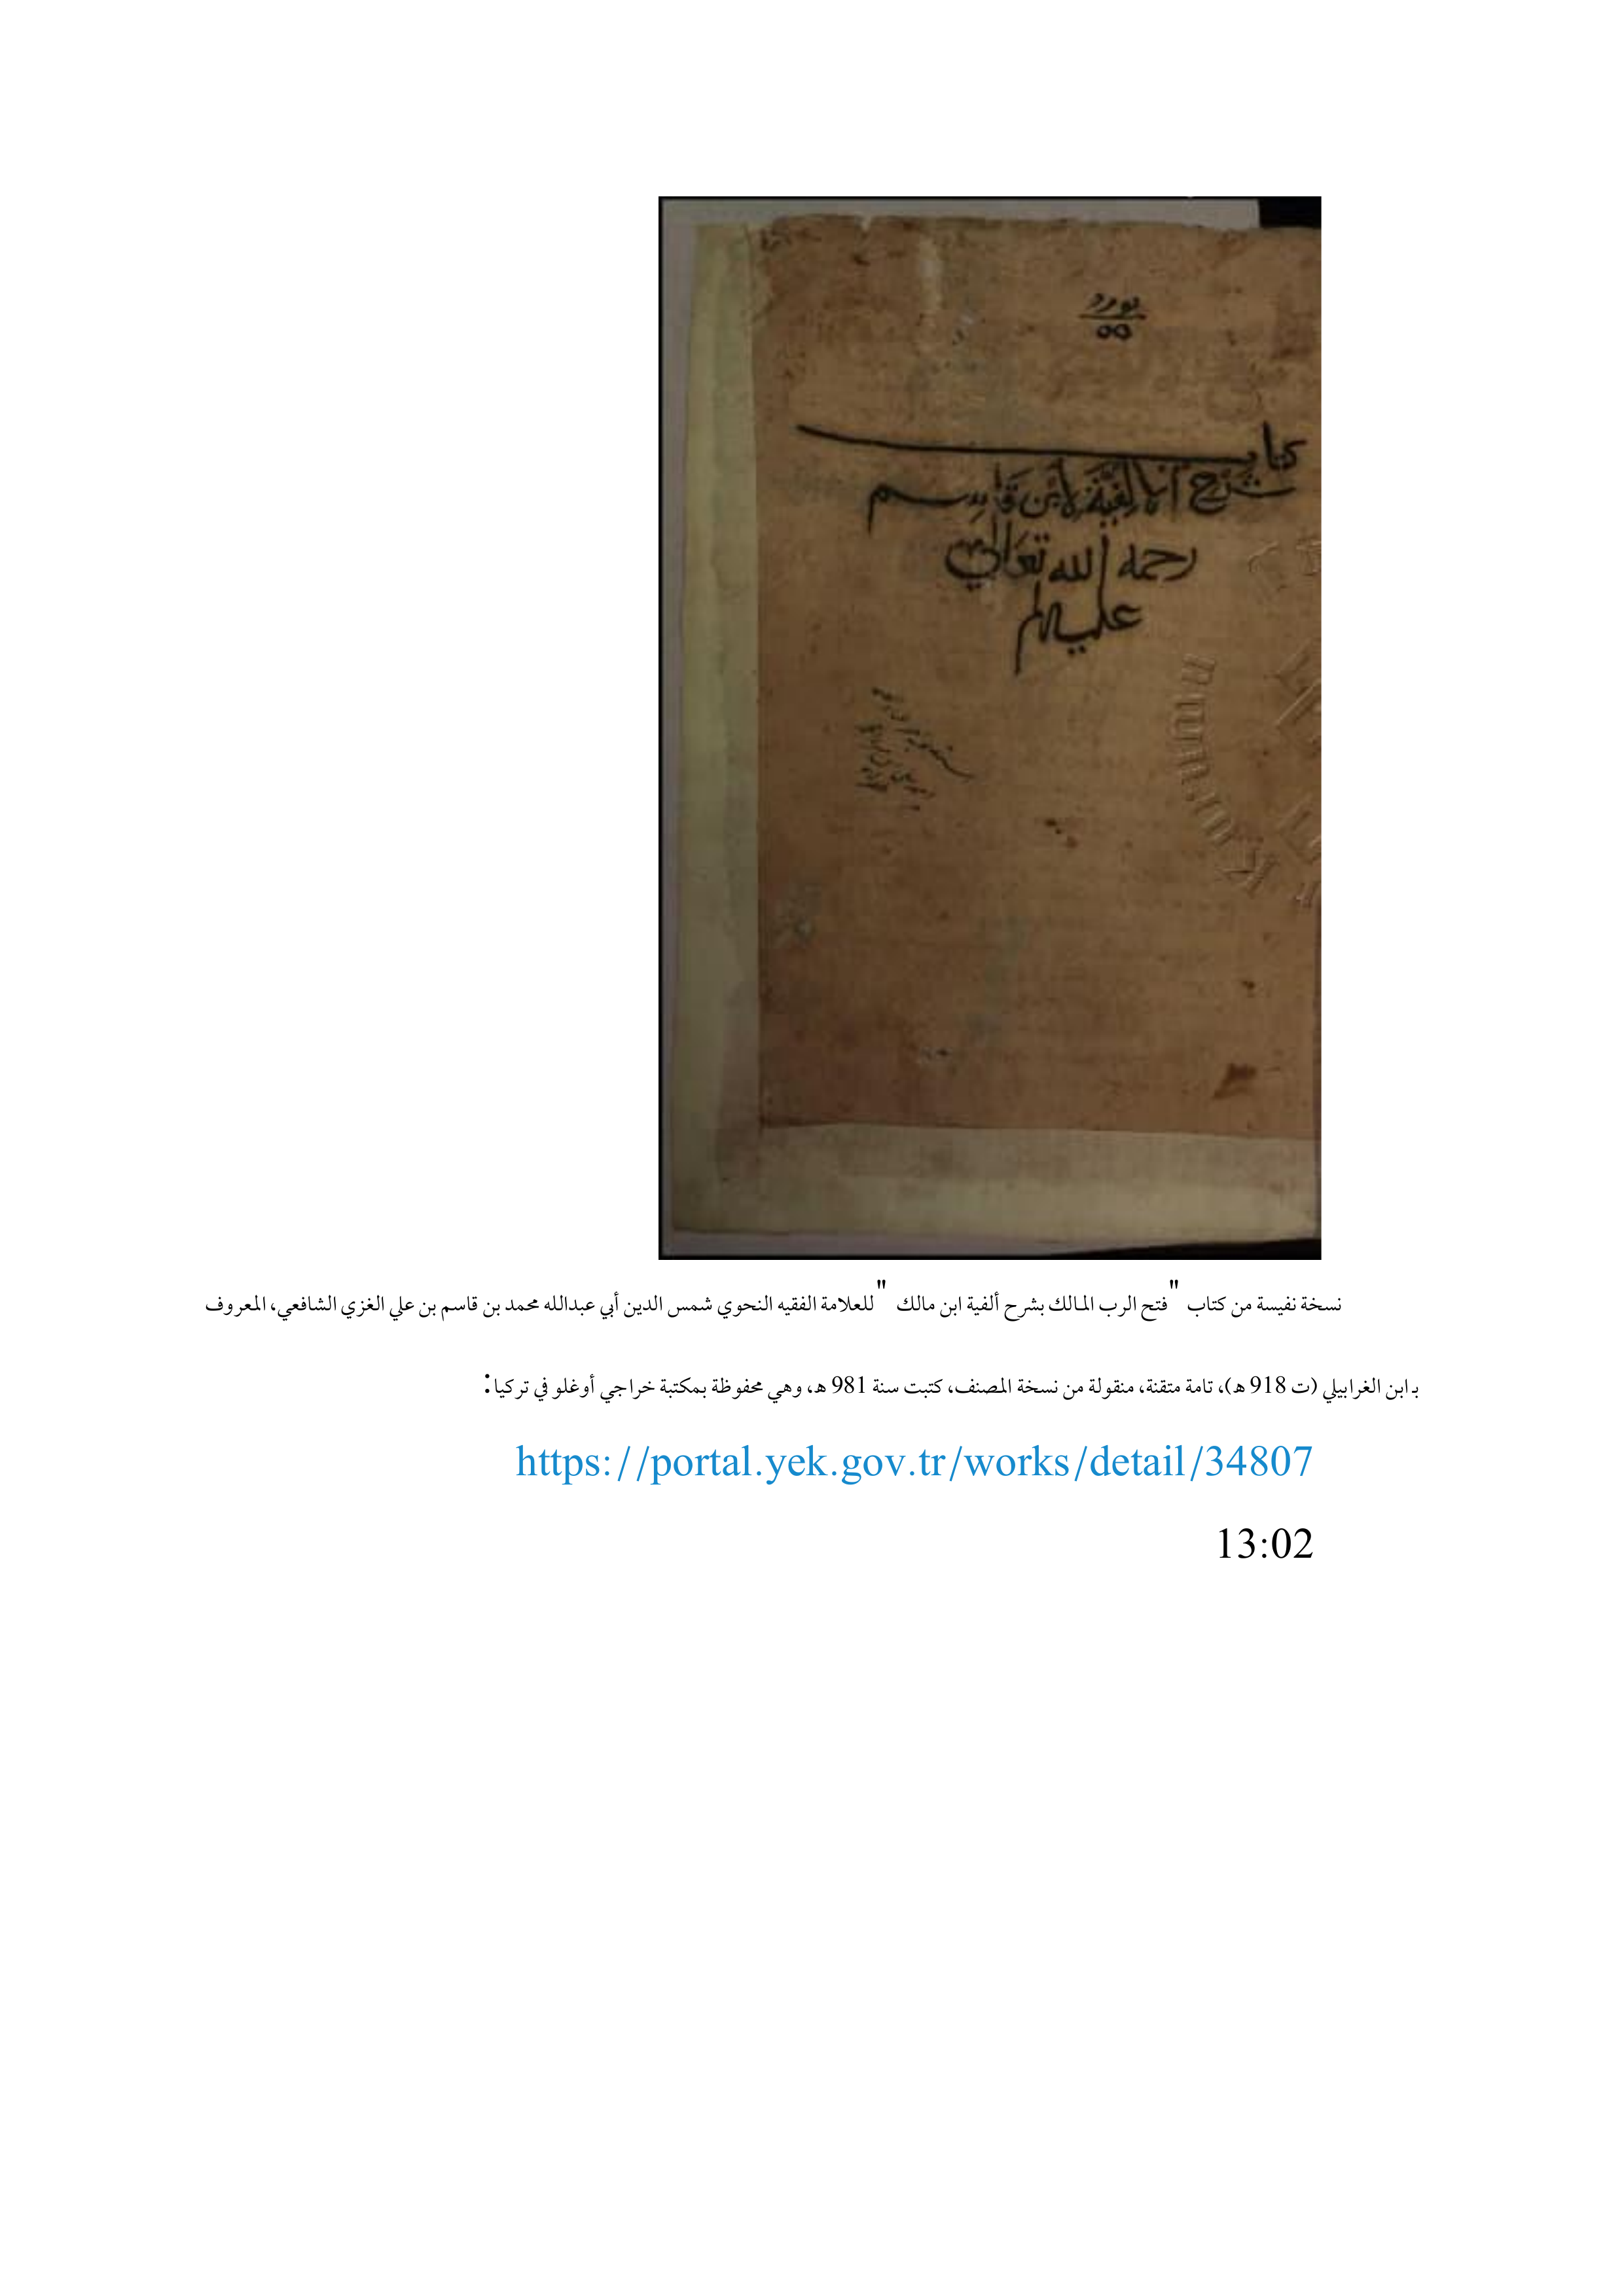 كتاب
شرح الألفية لابن قاسم
رحمه الله تعالى
نسخة نفيسة من كتاب "فتح الرب المالك بشرح ألفية ابن مالك" للعلامة الفقيه النحوي شمس الدين أبي عبدالله محمد بن قاسم بن علي الغزي الشافعي، المعروف
بـ ابن الغرابيلي (ت 918 هـ)، تامة متقنة، منقولة من نسخة المصنف، كتبت سنة 981 هـ، وهي محفوظة بمكتبة خراجي أوغلو في تركيا:
https://portal.yek.gov.tr/works/detail/34807
13:02